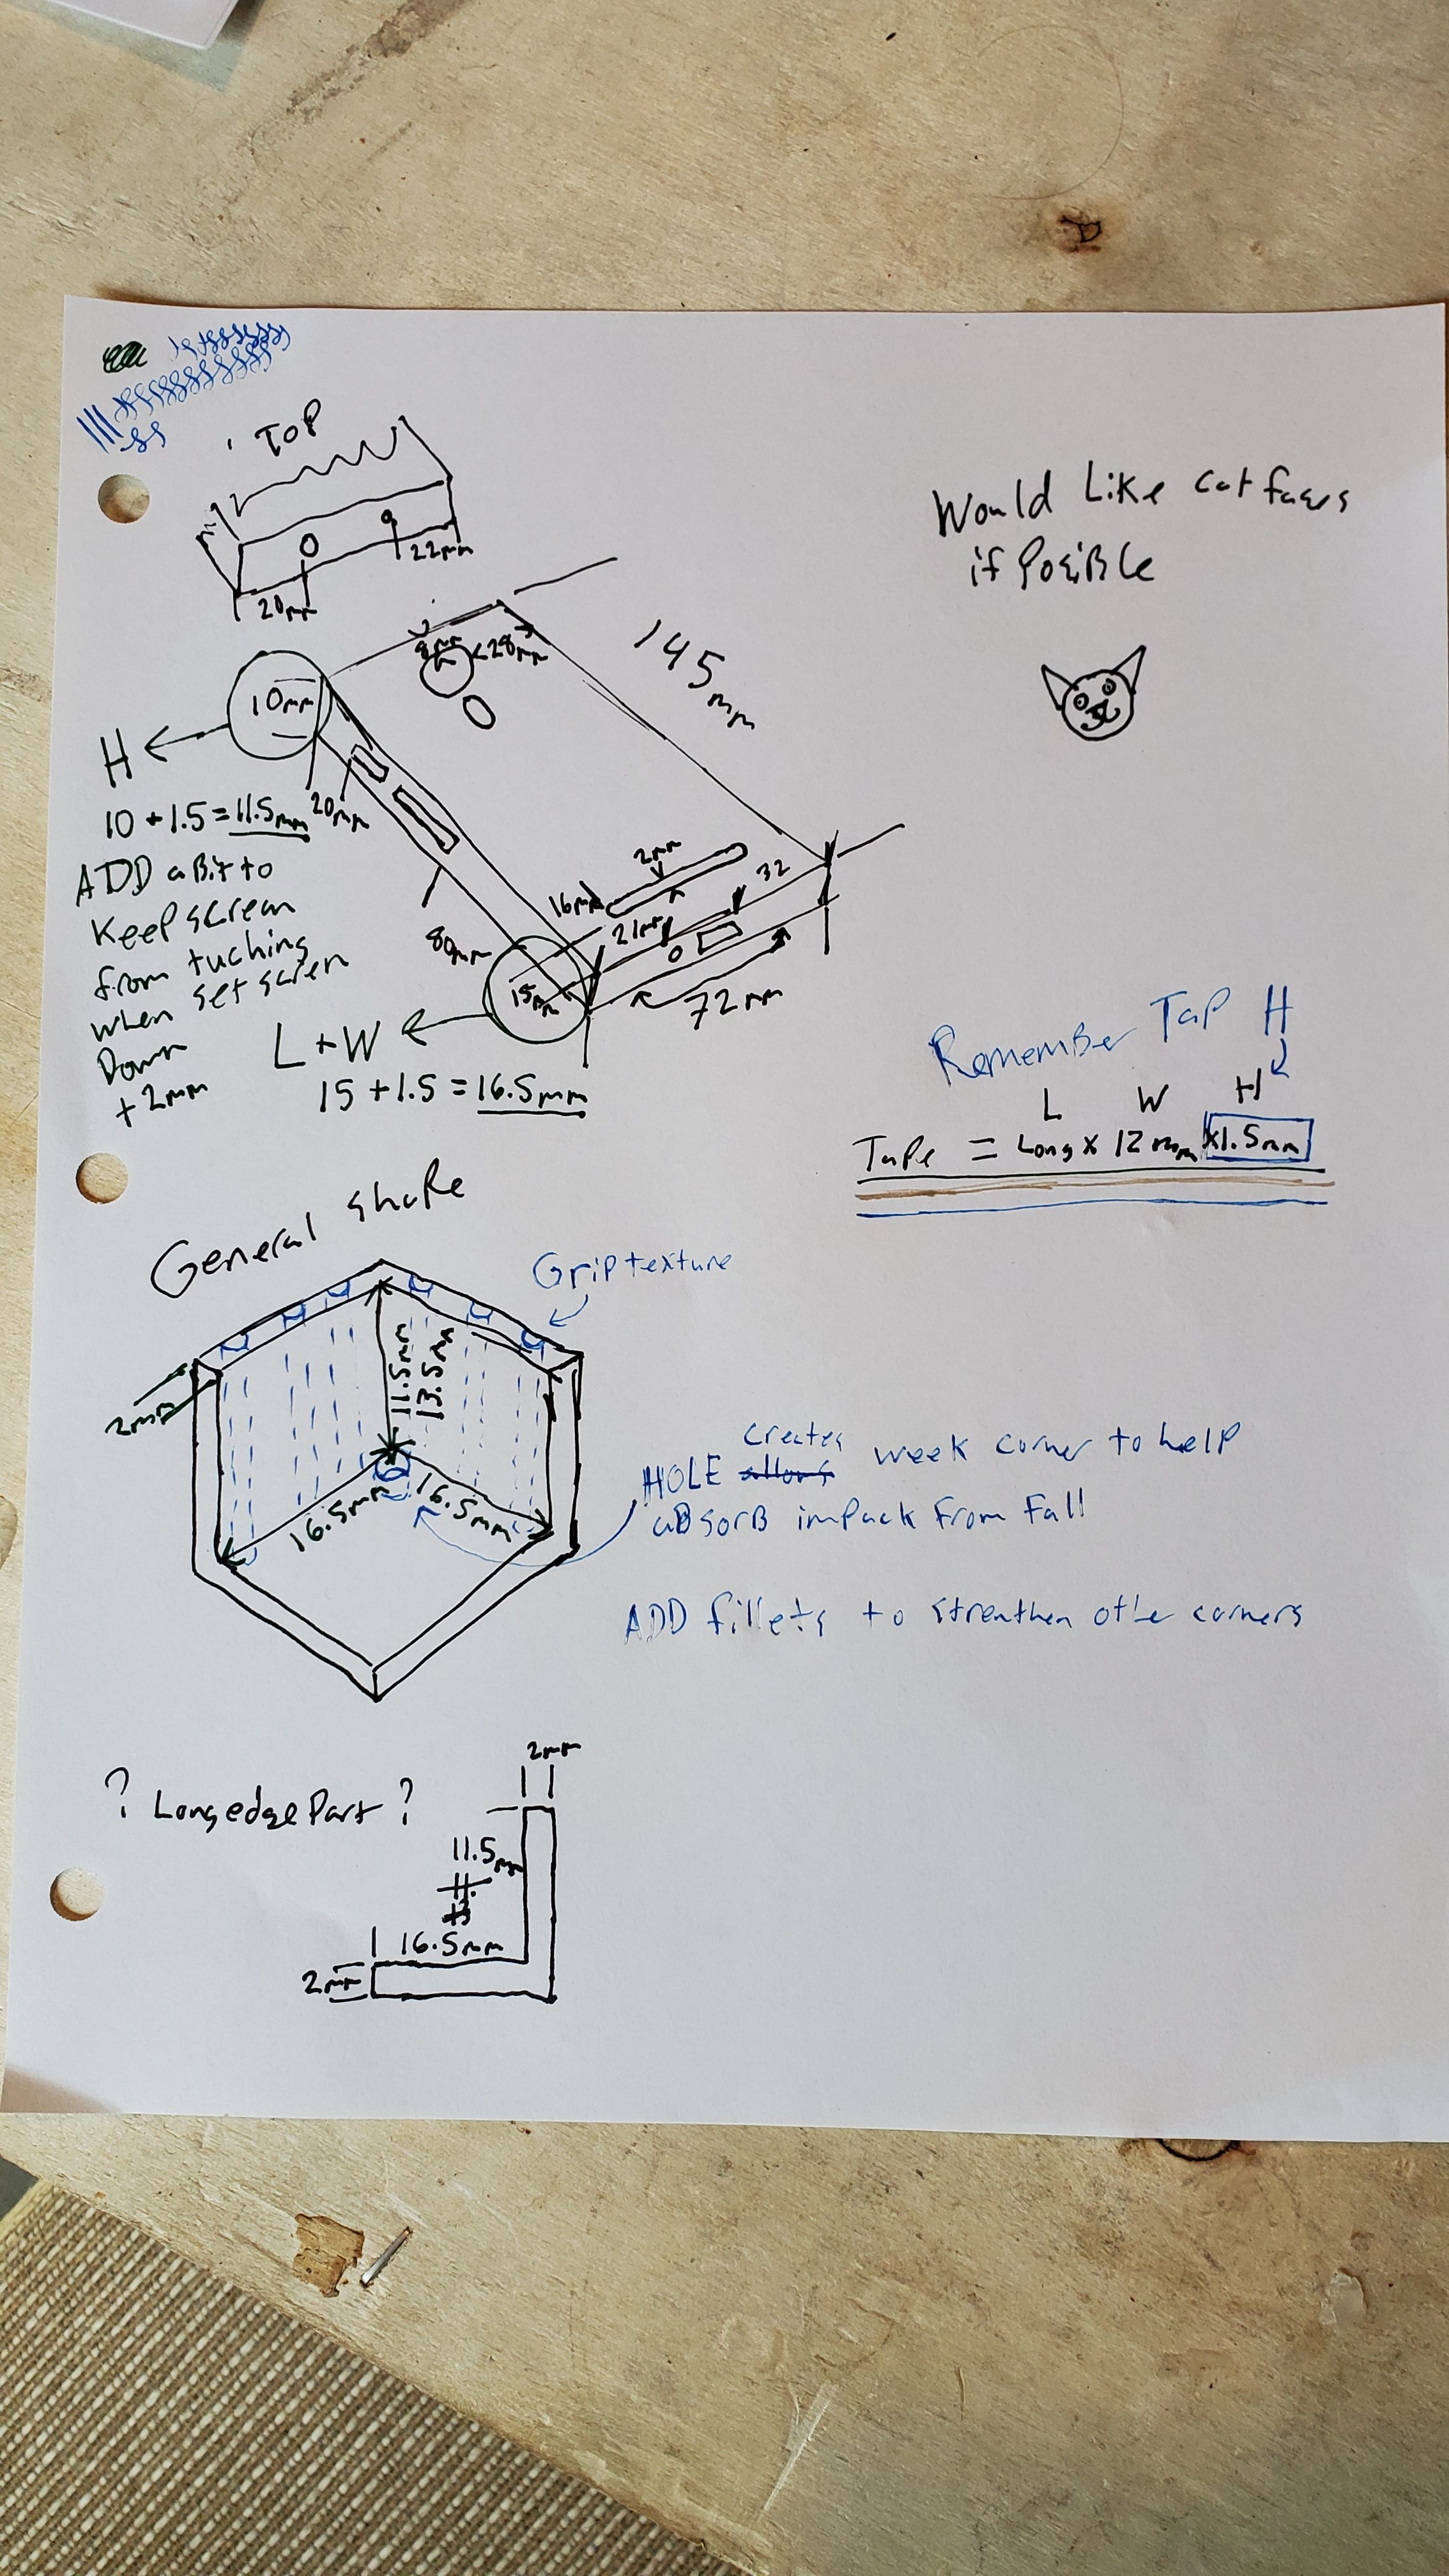 TOP
22mm
20mm
Would Like cat faces
if PosiBle
8mm
<28mm
145mm
10mm
H
10 + 1.5 = 11.5mm
20mm
ADD a Bit to
Keep screen
from tuching
when set scren
Down
+ 2mm
2mm
16mm
32
21mm
80mm
15mm
72mm
L + W
15 + 1.5 = 16.5mm
Remember Tap H
L W H
Tape = Long x 12mm x1.5mm
General shape
Grip texture
2mm
11.5mm
13.5mm
16.5mm
16.5mm
creates
HOLE allows week corner to help
aBsorB impack from fall
ADD fillets to strenthen othe corners
? Long edge Part ?
2mm
11.5mm
16.5mm
2mm